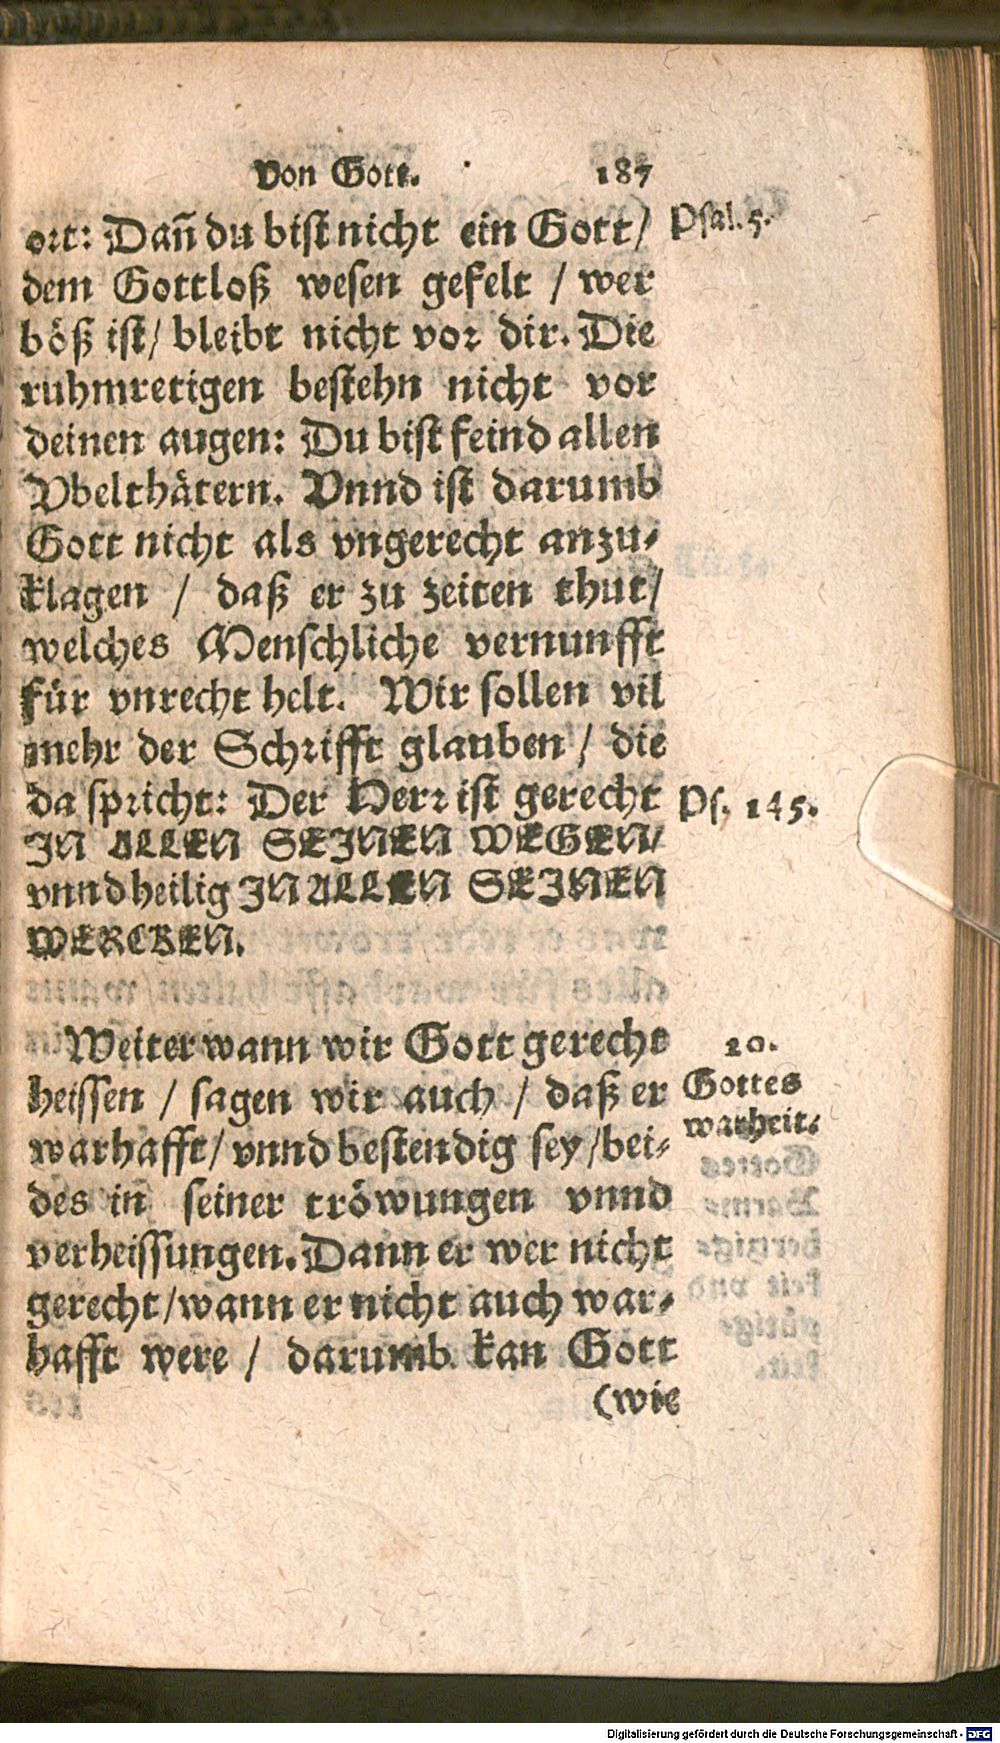 Von Gott. 187
ort: Dañ du bist nicht ein Gott/ Psal. 5.
dem Gottloß wesen gefelt / wer
böß ist/ bleibt nicht vor dir. Die
ruhmretigen bestehn nicht vor
deinen augen: Du bist feind allen
Vbelthätern. Vnnd ist darumb
Gott nicht als vngerecht anzu-
klagen / daß er zu zeiten thut/
welches Menschliche vernunfft
für vnrecht helt. Wir sollen vil
mehr der Schrifft glauben / die
da spricht: Der Herr ist gerecht Ps. 145.
IN ALLEN SEINEN WEGEN/
vnnd heilig IN ALLEN SEINEN
WERCKEN.
Weiter wann wir Gott gerecht 10.
heissen / sagen wir auch / daß er Gottes
warhafft/ vnnd bestendig sey / bei- warheit.
des in seiner tröwungen vnnd
verheissungen. Dann er wer nicht
gerecht / wann er nicht auch war-
hafft were / darumb kan Gott
(wie
Digitalisierung gefördert durch die Deutsche Forschungsgemeinschaft - DFG